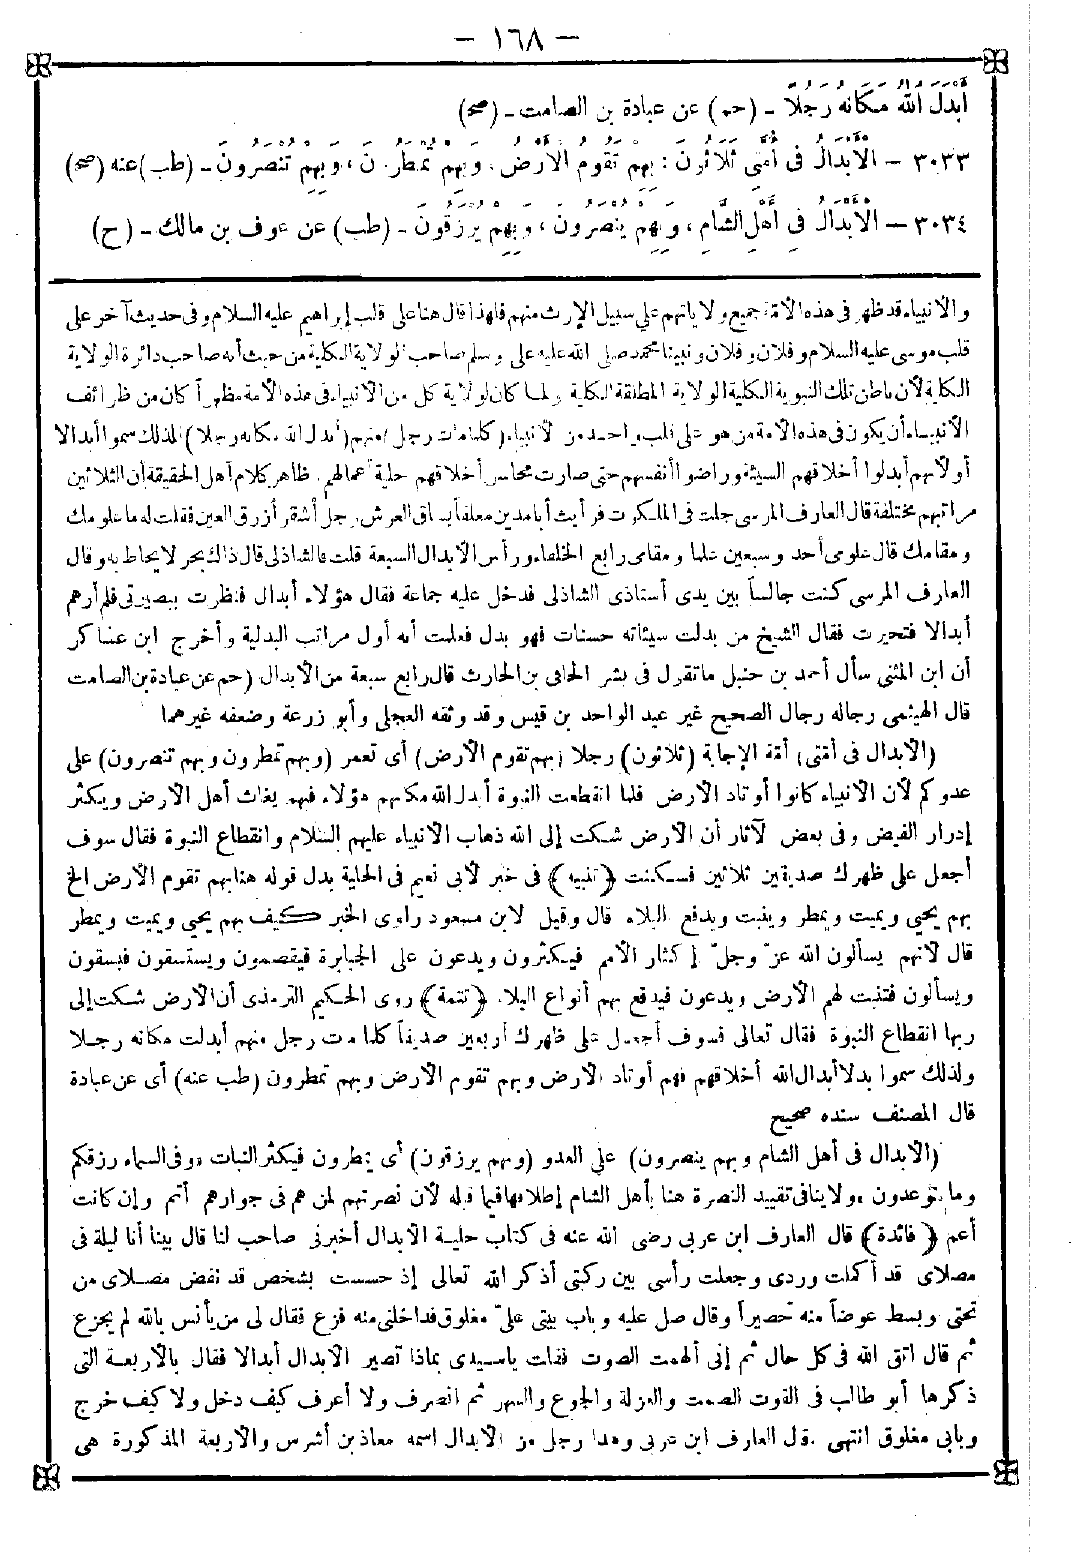 — ١٦٨ —
أَبْدَلَ اللهُ مَكَانَهُ رَجُلاً - (حم) عن عبادة بن الصامت - (صح)
٣٠٣٣ - الْأَبْدَالُ فِي أُمَّتِي ثَلَاثُونَ : بِهِمْ تَقُومُ الْأَرْضُ، وَبِهِمْ تُمْطَرُونَ، وَبِهِمْ تُنْصَرُونَ - (طب) عنه (صح)
٣٠٣٤ - الْأَبْدَالُ فِي أَهْلِ الشَّامِ، وَبِهِمْ يُنْصَرُونَ، وَبِهِمْ يُرْزَقُونَ - (طب) عن عوف بن مالك - (ح)
والأنبياء قد ظهر فى هذه الأمة جميع ولاياتهم على سبيل الإرث منهم فلهذا قال هنا على قلب إبراهيم عليه السلام وفى حديث آخر على
قلب موسى عليه السلام وفلان وفلان ونبينا محمد صلى الله عليه وسلم صاحب الولاية الكلية من حيث أنه صاحب دائرة الولاية
الكلية لأن باطن تلك النبوية الكلية الولاية المطلقة الكلية ولما كان لولاية كل من الأنبياء فى هذه الأمة مظهراً كان من ظرائف
الأنبياء أن يكون فى هذه الأمة من هو على قلب واحد من الأنبياء (كلما مات رجل) منهم (أبدل الله مكانه رجلا) فلذلك سموا أبدالا
أو لأنهم أبدلوا أخلاقهم السيئة وراضوا أنفسهم حتى صارت محاسن أخلاقهم حلية أعمالهم. ظاهر كلام أهل الحقيقة أن الثلاثين
مراتبهم مختلفة قال العارف المرسى جلت فى الملكوت فرأيت أبا مدين معلقاً بساق العرش رجل أشقر أزرق العين فقلت له ما علومك
ومقامك قال علومى أحد وسبعين علما ومقامى رابع الخلفاء ورأس الأبدال السبعة قلت فالشاذلى قال ذاك بحر لا يحاط به وقال
العارف المرسى كنت جالساً بين يدى أستاذى الشاذلى فدخل عليه جماعة فقال هؤلاء أبدال فنظرت ببصيرتى فلم أرهم
أبدالا فتحيرت فقال الشيخ من بدلت سيئاته حسنات فهو بدل فعلمت أنه أول مراتب البدلية وأخرج ابن عساكر
أن ابن المثنى سأل أحمد بن حنبل ما تقول فى بشر الحافى بن الحارث قال رابع سبعة من الأبدال (حم عن عبادة بن الصامت
قال الهيثمى رجاله رجال الصحيح غير عبد الواحد بن قيس وقد وثقه العجلى وأبو زرعة وضعفه غيرهما
(الأبدال فى أمتى) أمة الإجابة (ثلاثون) رجلا (بهم تقوم الأرض) أى تعمر (وبهم تمطرون وبهم تنصرون) على
عدوكم لأن الأنبياء كانوا أوتاد الأرض فلما انقطعت النبوة أبدل الله مكانهم هؤلاء فبهم يغاث أهل الأرض ويكثر
إدرار الفيض وفى بعض الآثار أن الأرض شكت إلى الله ذهاب الأنبياء عليهم السلام وانقطاع النبوة فقال سوف
أجعل على ظهرك صديقين ثلاثين فسكنت ﴿تنبيه﴾ فى خبر لأبى نعيم فى الحلية بدل قوله هنا بهم تقوم الأرض الخ
بهم يحيى ويميت ويمطر وينبت ويدفع البلاء قال وقيل لابن مسعود راوى الخبر كيف بهم يحيى ويميت ويمطر
قال لأنهم يسألون الله عز وجل إكثار الأمم فيكثرون ويدعون على الجبابرة فيقصمون ويستسقون فيسقون
ويسألون فتنبت لهم الأرض ويدعون فيدفع بهم أنواع البلاء ﴿تتمة﴾ روى الحكيم الترمذى أن الأرض شكت إلى
ربها انقطاع النبوة فقال تعالى فسوف أجعل على ظهرك أربعين صديقاً كلما مات رجل منهم أبدلت مكانه رجلا
ولذلك سموا بدلا أبدال الله أخلاقهم فهم أوتاد الأرض وبهم تقوم الأرض وبهم تمطرون (طب عنه) أى عن عبادة
قال المصنف سنده صحيح
(الأبدال فى أهل الشام وبهم ينصرون) على العدو (وبهم يرزقون) أى يمطرون فيكثر النبات «وفى السماء رزقكم
وما توعدون» ولا ينافى تقييد النصرة هنا بأهل الشام إطلاقها فيما قبله لأن نصرتهم لمن هم فى جوارهم أتم وإن كانت
أعم ﴿فائدة﴾ قال العارف ابن عربى رضى الله عنه فى كتاب حلية الأبدال أخبرنى صاحب لنا قال بينا أنا ليلة فى
مصلاى قد أكملت وردى وجعلت رأسى بين ركبتى أذكر الله تعالى إذ حسست بشخص قد نفض مصلاى من
تحتى وبسط عوضاً منه حصيراً وقال صل عليه وباب بيتى علىّ مغلوق فداخلنى منه فزع فقال لى من يأنس بالله لم يجزع
ثم قال اتق الله فى كل حال ثم إنى ألهمت الصوت فقلت ياسيدى بماذا تصير الأبدال أبدالا فقال بالأربعة التى
ذكرها أبو طالب فى القوت الصمت والعزلة والجوع والسهر ثم انصرف ولا أعرف كيف دخل ولا كيف خرج
وبابى مغلوق انتهى. قال العارف ابن عربى وهذا رجل من الأبدال اسمه معاذ بن أشرس والأربعة المذكورة هى